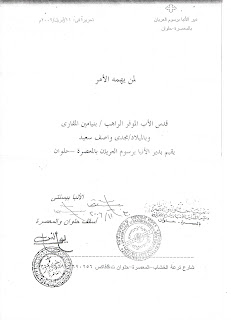 دير الأنبا برسوم العريان
بالمعصرة - حلوان
تحريراً في:
لمن يهمه الأمر
قدس الأب الموقر الراهب / بنيامين المقارى
وبالميلاد/مجدى واصف سعيد
يقيم بدير الأنبا برسوم العريان بالمعصرة – حلوان
الأنبا بيسنتى
أسقف حلوان والمعصرة
شارع ترعة الخشاب - المعصرة - حلوان